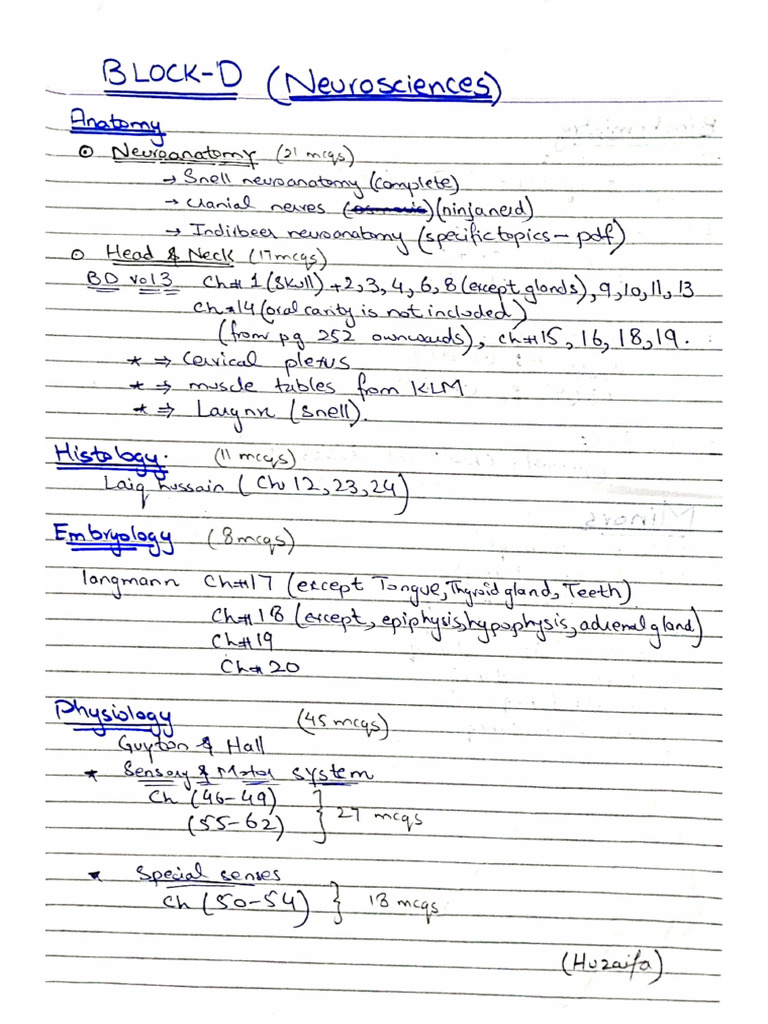 BLOCK-D (Neurosciences)
Anatomy
⊙ Neuroanatomy (21 mcqs)
→ Snell neuroanatomy (complete)
→ cranial nerves () (ninjanerd)
→ Indirbeer neuroanatomy (specific topics - pdf)
⊙ Head & Neck (17 mcqs)
BD vol 3 Ch# 1 (Skull) + 2, 3, 4, 6, 8 (except glands), 9, 10, 11, 13
Ch#14 (oral cavity is not included)
(from pg 252 ownwards), Ch#15, 16, 18, 19.
* ⇒ Cervical plexus
* ⇒ muscle tables from KLM
* ⇒ Larynx (Snell).
Histology. (11 mcqs)
Laiq hussain (Ch# 12, 23, 24)
Embryology (8 mcqs)
longmann Ch#17 (except Tongue, Thyroid gland, Teeth)
Ch#18 (except, epiphysis, hypophysis, adrenal gland)
Ch#19
Ch# 20
Physiology (45 mcqs)
Guyton & Hall
* Sensory & Motor system
Ch (46-49)
(55-62) } 27 mcqs
* Special senses
Ch (50-54) } 18 mcqs
(Huzaifa)
Minors